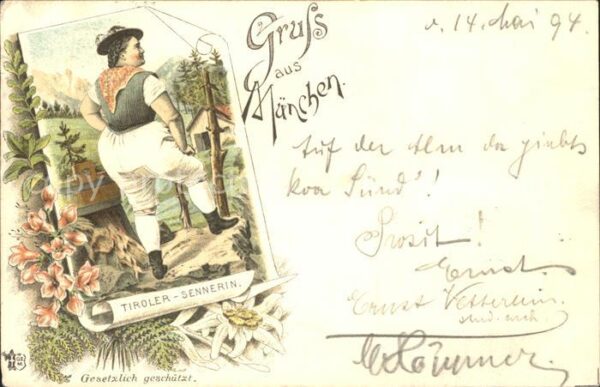 Gruss
aus
München.
d. 14. Mai 94.
Auf der Alm da giebts
koa Sünd'!
Prosit!
Ernst.
Ernst Vetterlein.
TIROLER-SENNERIN.
Gesetzlich geschützt.